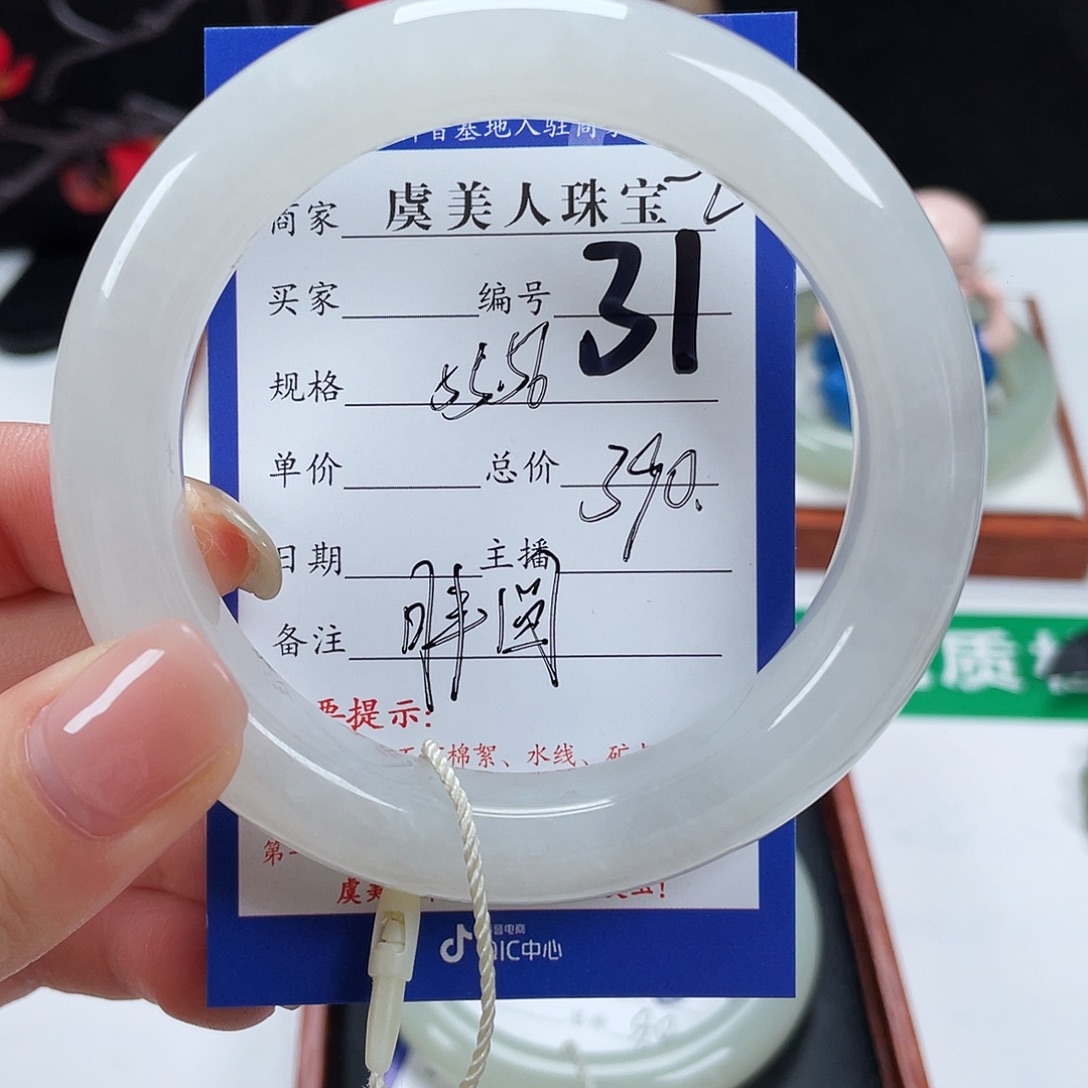 基地入驻商家
商家 虞美人珠宝
买家 编号 31
规格 55.56
单价 总价 390.
日期 主播
备注 胖圆
提示:
棉絮、水线、矿
第一
虞美
抖音电商
QIC中心
质